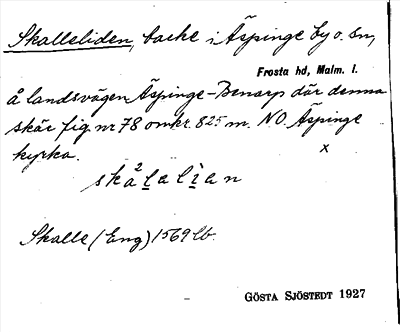 Skalleliden, backe i Äspinge by o. sn,
Frosta hd, Malm. l.
å landsvägen Äspinge-Benarp där denna
skär fig. nr 78 omkr. 825 m. NO. Äspinge
kyrka. x
Skalle (Eng) 1569 lb.
GÖSTA SJÖSTEDT 1927